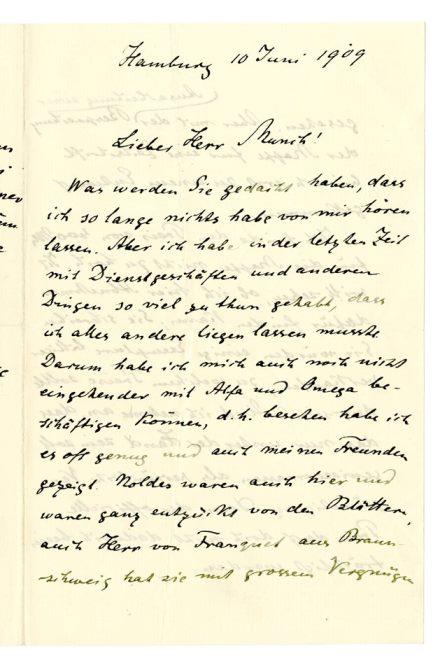 Hamburg 10 Juni 1909
Lieber Herr Munch!
Was werden Sie gedacht haben, dass
ich so lange nichts habe von mir hören
lassen. Aber ich habe in der letzten Zeit
mit Dienstgeschäften und anderen
Dingen so viel zu thun gehabt, dass
ich alles andere liegen lassen musste.
Darum habe ich mich auch noch nicht
eingehender mit Alfa und Omega be-
schäftigen können, d.h. besehen habe ich
es oft genug und auch meinen Freunden
gezeigt. Noldes waren auch hier und
waren ganz entzückt von den Blättern,
auch Herr von Franquet aus Braun-
-schweig hat sie mit grossem Vergnügen